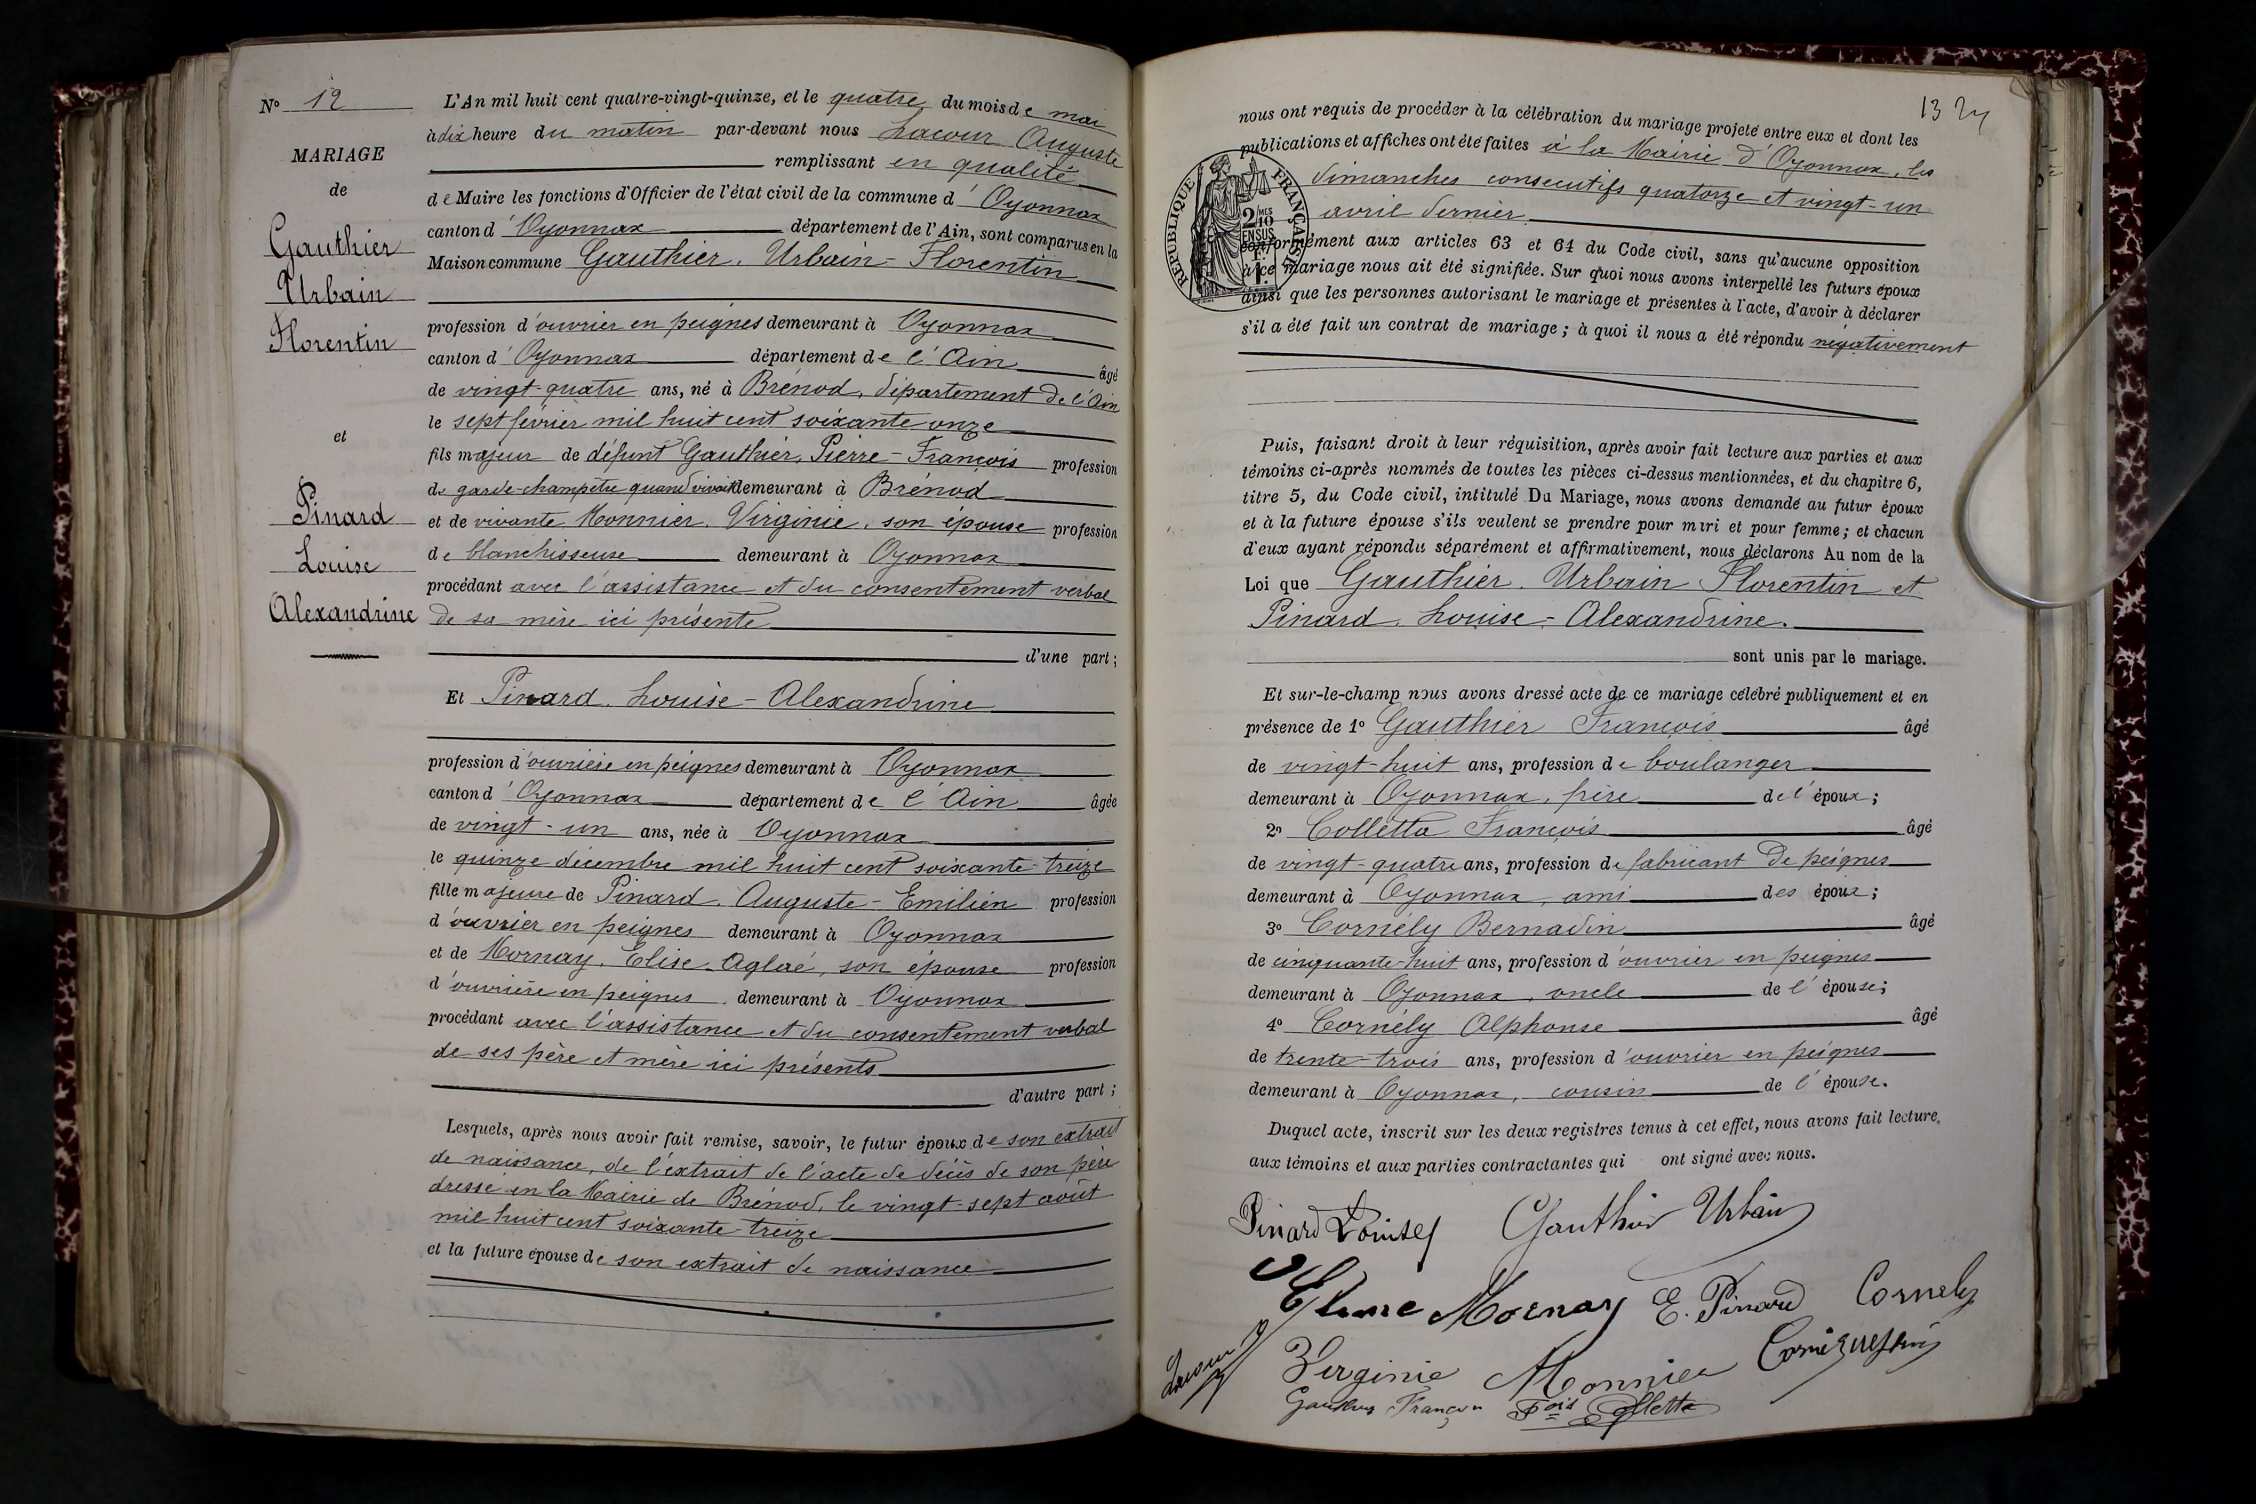 N° 12
MARIAGE
de
Gauthier
Urbain
Florentin
et
Pinard
Louise
Alexandrine
L'An mil huit cent quatre-vingt-quinze, et le quatre du mois de mai
à dix heure du matin par-devant nous Lacour Auguste
remplissant en qualité
de Maire les fonctions d'Officier de l'état civil de la commune d'Oyonnax
canton d'Oyonnax département de l'Ain, sont comparus en la
Maison commune Gauthier, Urbain-Florentin
profession d'ouvrier en peignes demeurant à Oyonnax
canton d'Oyonnax département de l'Ain âgé
de vingt-quatre ans, né à Brénod, département de l'Ain
le sept février mil huit cent soixante onze
fils majeur de défunt Gauthier, Pierre-François profession
de garde-champêtre quand vivait demeurant à Brénod
et de vivante Monnier, Virginie, son épouse profession
de blanchisseuse demeurant à Oyonnax
procédant avec l'assistance et du consentement verbal
de sa mère ici présente
d'une part;
Et Pinard, Louise-Alexandrine
profession d'ouvrière en peignes demeurant à Oyonnax
canton d'Oyonnax département de l'Ain âgée
de vingt-un ans, née à Oyonnax
le quinze décembre mil huit cent soixante-treize
fille majeure de Pinard, Auguste-Emilien profession
d'ouvrier en peignes demeurant à Oyonnax
et de Mornay, Elise-Aglaé, son épouse profession
d'ouvrière en peignes demeurant à Oyonnax
procédant avec l'assistance et du consentement verbal
de ses père et mère ici présents
d'autre part;
Lesquels, après nous avoir fait remise, savoir, le futur époux de son extrait
de naissance, de l'extrait de l'acte de décès de son père
dressé en la Mairie de Brénod, le vingt-sept août
mil huit cent soixante-treize
et la future épouse de son extrait de naissance
13
nous ont requis de procéder à la célébration du mariage projeté entre eux et dont les
publications et affiches ont été faites à la Mairie d'Oyonnax, les
dimanches consecutifs quatorze et vingt-un
avril dernier
RÉPUBLIQUE FRANÇAISE
2 MES
10
EN SUS
1F.
conformément aux articles 63 et 64 du Code civil, sans qu'aucune opposition
à ce mariage nous ait été signifiée. Sur quoi nous avons interpellé les futurs époux
ainsi que les personnes autorisant le mariage et présentes à l'acte, d'avoir à déclarer
s'il a été fait un contrat de mariage; à quoi il nous a été répondu négativement
Puis, faisant droit à leur réquisition, après avoir fait lecture aux parties et aux
témoins ci-après nommés de toutes les pièces ci-dessus mentionnées, et du chapitre 6,
titre 5, du Code civil, intitulé Du Mariage, nous avons demandé au futur époux
et à la future épouse s'ils veulent se prendre pour mari et pour femme; et chacun
d'eux ayant répondu séparément et affirmativement, nous déclarons Au nom de la
Loi que Gauthier, Urbain Florentin et
Pinard, Louise-Alexandrine.
sont unis par le mariage.
Et sur-le-champ nous avons dressé acte de ce mariage célébré publiquement et en
présence de 1° Gauthier François âgé
de vingt-huit ans, profession de boulanger
demeurant à Oyonnax, frère de l'époux;
2° Colletta François âgé
de vingt-quatre ans, profession de fabricant de peignes
demeurant à Oyonnax, ami des époux;
3° Cornély Bernadin âgé
de cinquante-huit ans, profession d'ouvrier en peignes
demeurant à Oyonnax, oncle de l'épouse;
4° Cornély Alphonse âgé
de trente-trois ans, profession d'ouvrier en peignes
demeurant à Oyonnax, cousin de l'épouse.
Duquel acte, inscrit sur les deux registres tenus à cet effet, nous avons fait lecture,
aux témoins et aux parties contractantes qui ont signé avec nous.
Pinard Louise Gauthier Urbain
Mornay E. Pinard Cornely
Lacour
Virginie Monnier
Gauthier François Fois Colletta